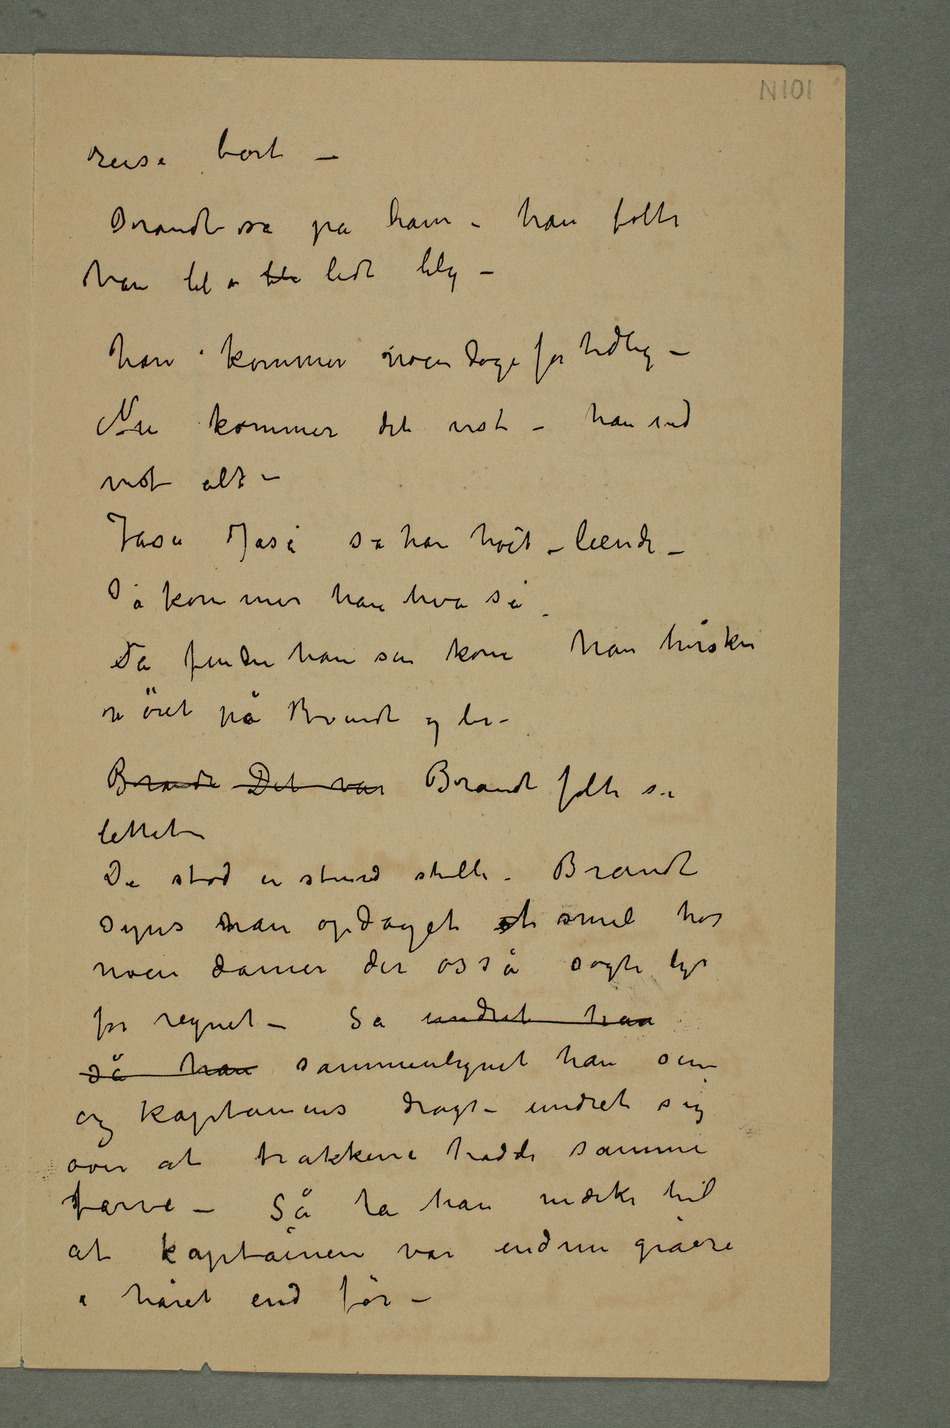 N101
reise bort –
Brandt så på ham – han følte
han bl a ble lidt bleg –
han kommer noen dage før tidlig –
Nu kommer det vist – han ved
vist alt –
Jaså Jaså sa han høit – leende –
Så kommer han hva så
Da finder han sin kone han hvisker
i øret på Brandt og ler –
Brandt Det var Brandt følte sig
lettet
De stod en stund stille – Brandt
synes han opdaget et smil hos
noen damer der også søgte ly
for regnet – Så undret han
så han sammenlignet han sin
og kaptainens dragt – undret sig
over at frakkene hadde samme
farve – Så la han mærke til
at kaptainen var endnu gråere
i håret end før –